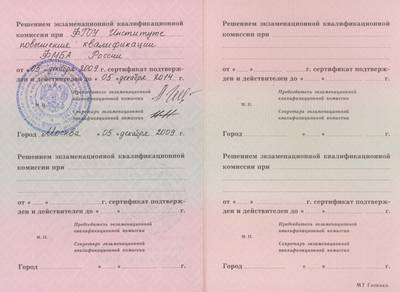 Решением экзаменационной квалификационной
комиссии при ФГОУ Институте
повышения квалификации
ФМБА России
от «05» декабря 2009 г. сертификат подтверж-
ден и действителен до «05» декабря 2014 г.
Председатель экзаменационной
квалификационной комиссии
М. П.
Секретарь экзаменационной
квалификационной комиссии
Город Москва «05» декабря 2009 г.
Решением экзаменационной квалификационной
комиссии при
от « » г. сертификат подтверж-
ден и действителен до « » г.
Председатель экзаменационной
квалификационной комиссии
М. П.
Секретарь экзаменационной
квалификационной комиссии
Город « » г.
Решением экзаменационной квалификационной
комиссии при
от « » г. сертификат подтверж-
ден и действителен до « » г.
Председатель экзаменационной
квалификационной комиссии
М. П.
Секретарь экзаменационной
квалификационной комиссии
Город « » г.
Решением экзаменационной квалификационной
комиссии при
от « » г. сертификат подтверж-
ден и действителен до « » г.
Председатель экзаменационной
квалификационной комиссии
М. П.
Секретарь экзаменационной
квалификационной комиссии
Город « » г.
МТ Гознака